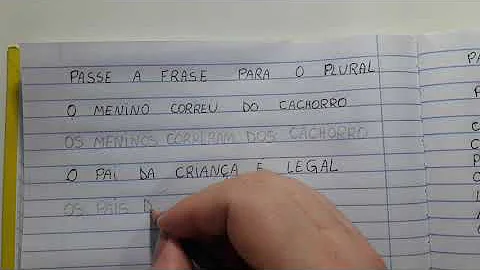 PASSE A FRASE PARA O PLURAL
O MENINO CORREU DO CACHORRO
OS MENINOS CORRERAM DOS CACHORRO
O PAI DA CRIANÇA É LEGAL
OS PAIS D